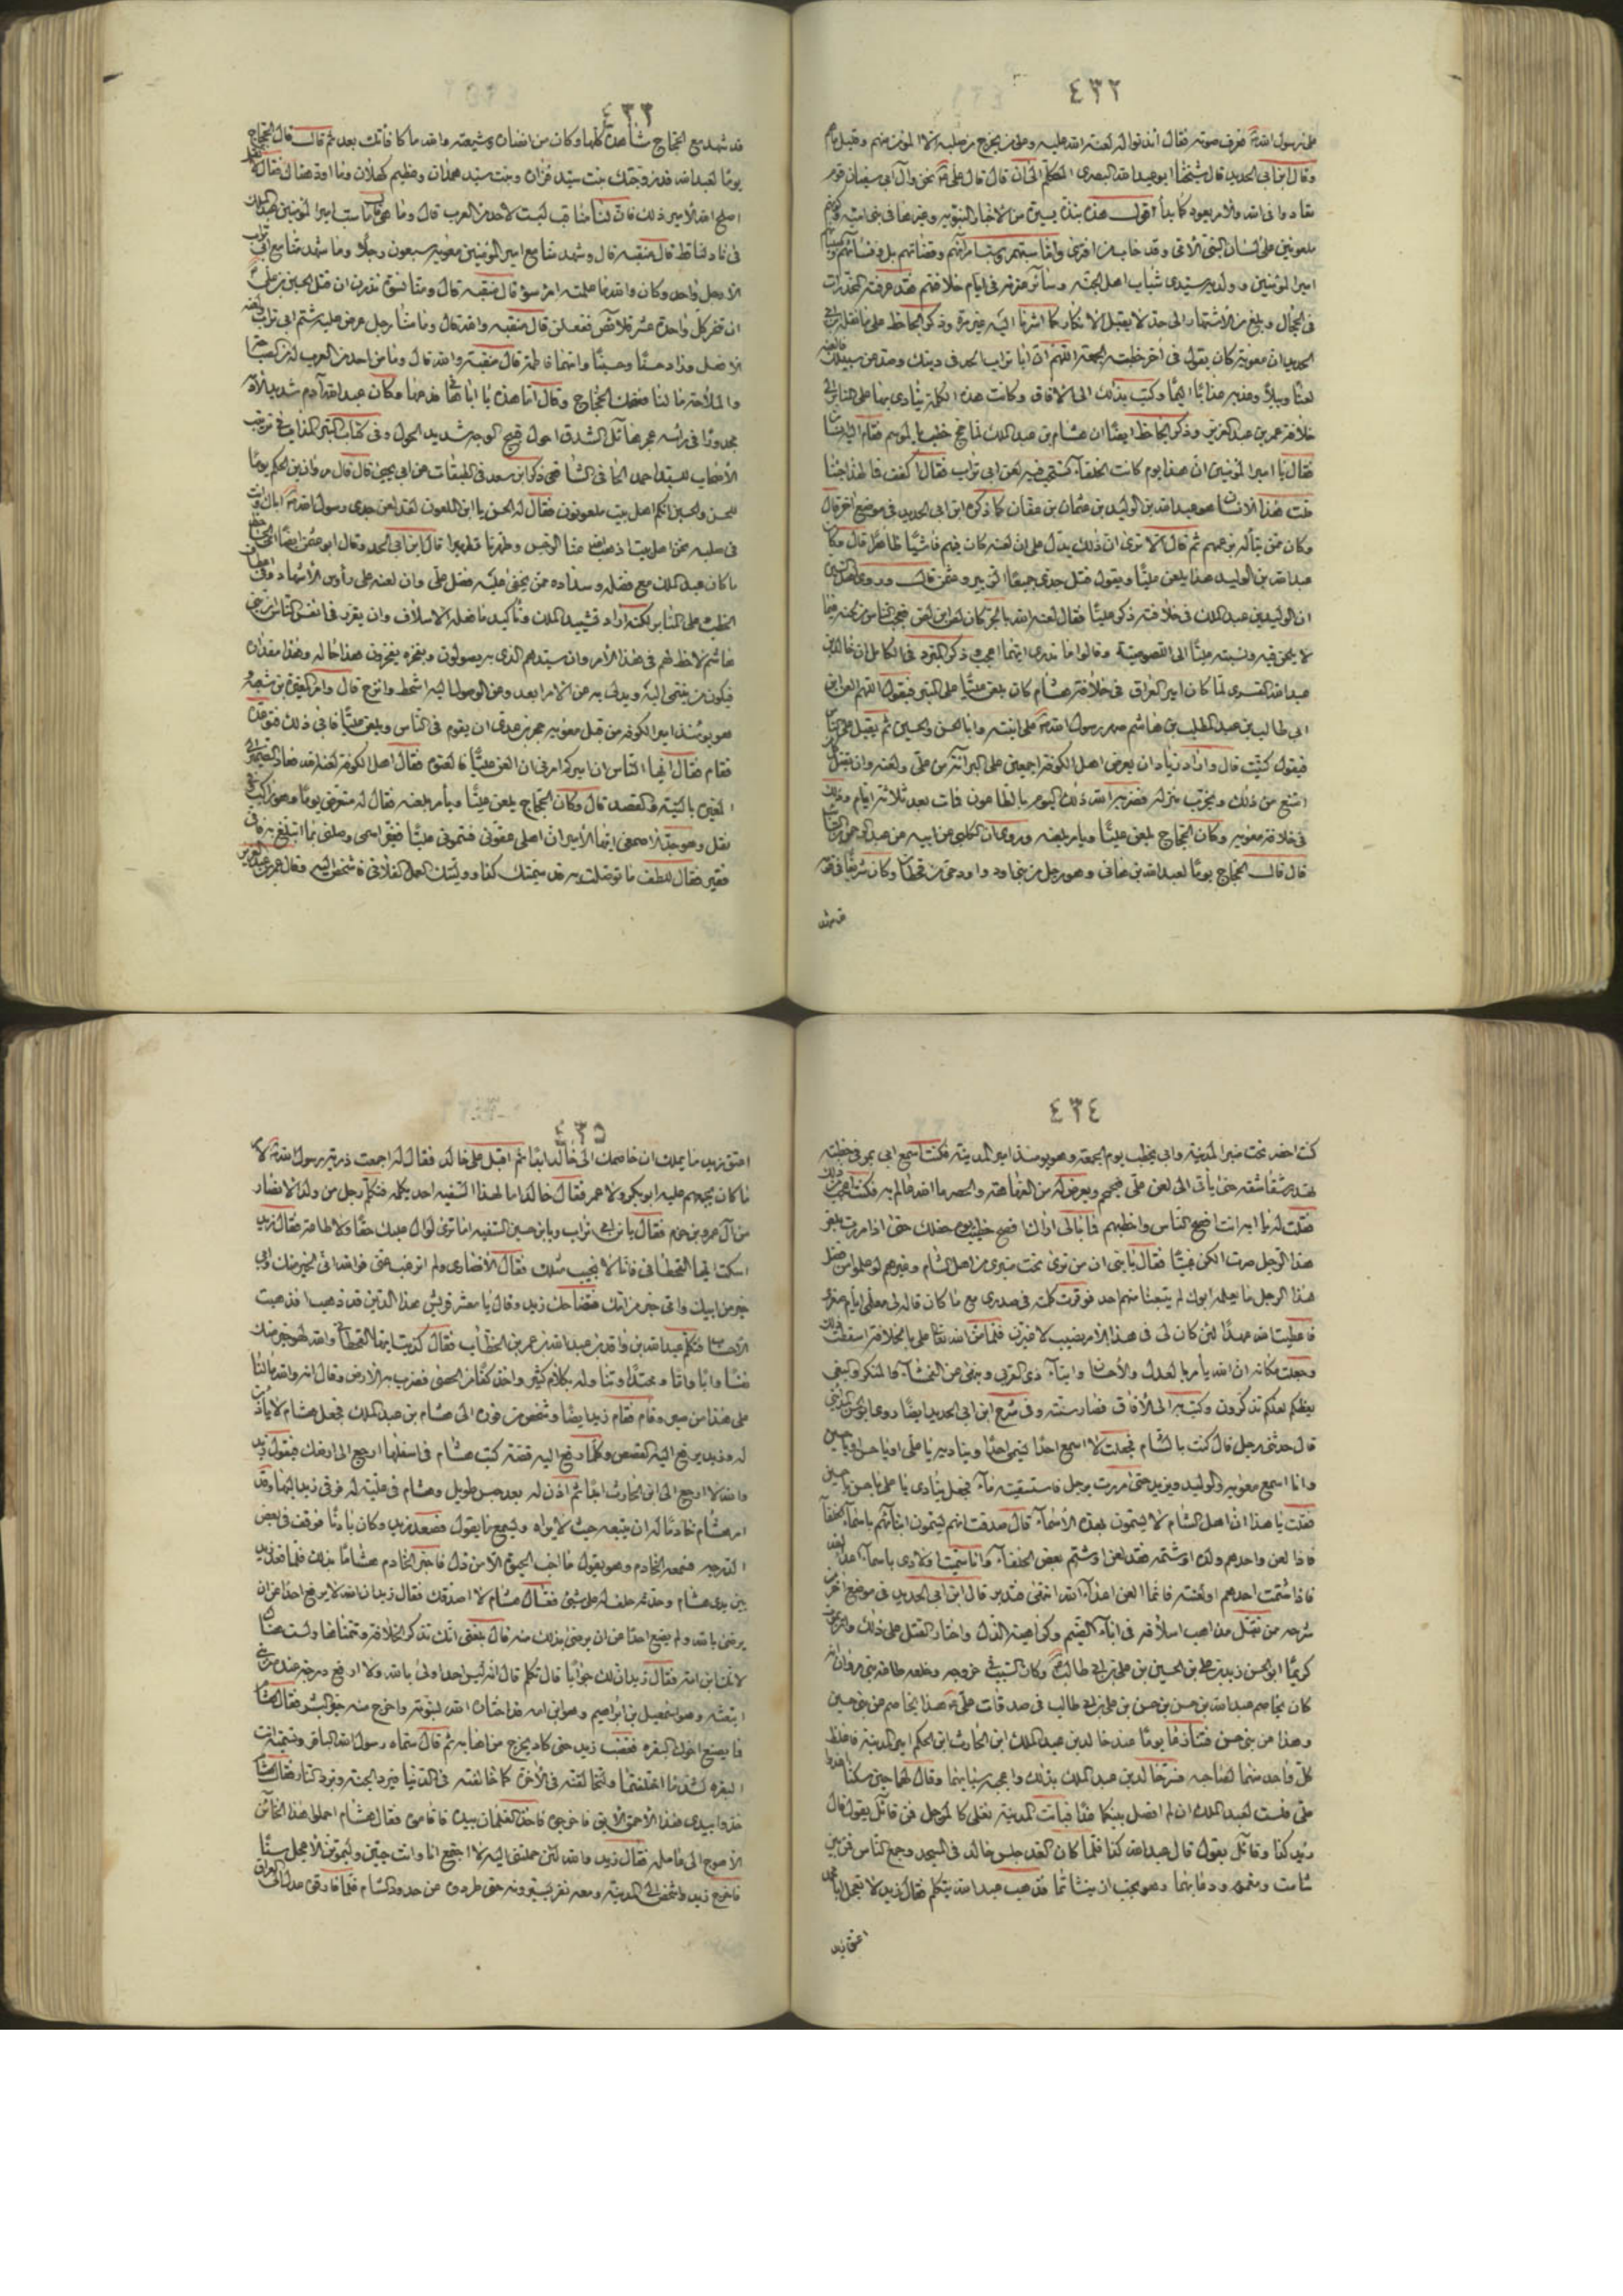 ٤٣٢
على رسول الله فعرف صوته فقال ائذنوا له لعنة الله عليه وعلى من يخرج من صلبه الا المؤمن منهم وقليل ما هم
وقال ابن ابي الحديد قال شيخنا ابو عبد الله البصري المتكلم قال قال علي نحن وآل ابي سفيان قوم
تعادوا في الله والامر يعود كما بدأ اقول هذه نبذة يسيرة من الاخبار النبوية وغيرها في بني امية
ملعونين على لسان النبي الأمي وقد خاب من افترى
امير المؤمنين وولديه سيدي شباب اهل الجنة وسائر عترته في ايام خلافتهم
وذكر الجاحظ
ان معوية كان يقول في آخر خطبته الجمعة اللهم ان ابا تراب الحد في دينك وصد عن سبيلك فالعنه
لعنا وبيلا وعذبه عذابا اليما وكتب بذلك الى الآفاق وكانت هذه الكلمة ينادى بها على المنابر الى
خلافة عمر بن عبد العزيز وذكر الجاحظ ايضا ان هشام بن عبد الملك لما حج خطب بالموسم فقام اليه انسان
فقال يا امير المؤمنين ان هذا يوم كانت الخلفاء تستحب فيه لعن ابي تراب فقال اكفف فما لهذا جئنا
قلت هذا الانسان هو عبد الله بن الوليد بن عثمان بن عفان كما ذكره ابن ابي الحديد في موضع آخر قال
وكان ممن يناله بزعمهم ثم قال الا ترى ان ذلك يدل على ان لعنه كان فيهم فاشيا ظاهرا قال وكان
عبد الله بن الوليد هذا يلعن عليا ويقول قتل جدي جميعا الزبير وعثمن قال وروى اهل السير
ان الوليد بن عبد الملك في خلافته ذكر عليا فقال لعنه الله بالجر كان لص ابن لص فعجب الناس من لحنه فيما
لا يلحن فيه ونسبته عليا الى اللصوصية وقالوا ما ندري ايهما اعجب وذكر المبرد في الكامل ان خالد بن
عبد الله القسري لما كان امير العراق في خلافة هشام كان يلعن عليا على المنبر فيقول اللهم العن علي بن
ابي طالب بن عبد المطلب بن هاشم صهر رسول الله على ابنته وابا الحسن والحسين ثم يقبل على الناس
فيقول كنيت قال واراد زياد ان يعرض اهل الكوفة اجمعين على البراءة من علي ولعنه وان يقتل كل من
امتنع من ذلك ويخرب منزله فضربه الله ذلك اليوم بالطاعون فمات بعد ثلاثة ايام وذلك
في خلافة معوية وكان الحجاج يلعن عليا ويأمر بلعنه وروى ابن الكلبي عن ابيه عن عبد الرحمن بن السائب
قال قال الحجاج يوما لعبد الله بن هاني وهو رجل من بني اود حي من قحطان وكان شريفا في قومه
٤٣٣
قد شهد مع الحجاج مشاهده كلها وكان من انصاره وشيعته والله ما كافأتك بعد ثم قال قال الحجاج
يوما لعبد الله قد زوجتك بنت سيد فزارة وبنت سيد همدان وعظيم كهلان وما اود هنالك فقال لا تقل
اصلح الله الامير ذلك فان لنا مناقب ليست لاحد من العرب قال وما هي قال ما سب امير المؤمنين عبد الملك
في ناد لنا قط قال منقبة قال وشهد منا مع امير المؤمنين معوية سبعون رجلا وما شهد منا مع ابي تراب
الا رجل واحد وكان والله ما علمته امرء سوء قال منقبة قال ومنا نسوة نذرن ان قتل الحسين بن علي
ان تنحر كل واحدة عشر قلائص ففعلن قال منقبة والله قال وما منا رجل عرض عليه شتم ابي تراب ولعنه
الا فعل وزاد حسنا وحسينا وامهما فاطمة قال منقبة والله قال وما من احد من العرب له من الصباحة
والملاحة ما لنا فضحك الحجاج وقال اما هذه يا ابا هاني فدعها وكان عبد الله آدم شديد الادمة
مجدورا في رأسه عجر مائل الشدق احول قبيح الوجه شديد الحول
ذكر ابن سعد في الطبقات عن ابي يحيى قال قال مروان بن الحكم يوما
للحسن والحسين انكم اهل بيت ملعونون فقال له الحسن يا ابن الملعون لقد لعن جدي رسول الله اباك وانت
في صلبه نحن اهل بيت اذهب الله عنا الرجس وطهرنا تطهيرا قال ابن ابي الحديد وقال ابو عثمن ايضا
ما كان عبد الملك مع فضله وسداده ممن يخفى عليه فضل علي وان لعنه على رأوس الأشهاد وفي اعطاف
الخطب على المنابر لكنه اراد تشييد الملك وتأكيد ما فعله الاسلاف وان يقرر في انفس الناس ان بني
هاشم لا حظ لهم في هذا الأمر وان سيدهم الذي به يصولون وبفخره يفخرون هذا حاله وهذا مقداره
فيكون من ينتمي اليه ويدلي به عن الامر ابعد وعن الوصول اليه اشحط وانزح قال وامر المغيرة بن شعبة
هو يومئذ امير الكوفة من قبل معوية حجر بن عدي ان يقوم في الناس ويلعن عليا فابى ذلك فتوعده
فقام فقال ايها الناس ان اميركم امرني ان العن عليا فالعنوه فقال اهل الكوفة لعنه الله
المغيرة بالنية والقصد قال وكان الحجاج يلعن عليا ويأمر بلعنه فقال له متعرض يوما وهو راكب
ايها الأمير ان اهلي عقوني فسموني عليا فغير اسمي وصلني بما اتبلغ به فاني
فقير فقال للطف ما توصلت به قد سميتك كذا ووليتك العمل الفلاني فاشخص اليه وقال عمر بن عبد العزيز
٤٣٤
كنت احضر تحت منبر المدينة وابي يخطب يوم الجمعة وهو يومئذ امير المدينة فكنت اسمع ابي يمر في خطبته
تهدر شقاشقه حتى يأتي الى لعن علي فيجمجم ويعرض له من الفهاهة والحصر ما الله عالم به فكنت اعجب من ذلك
فقلت له يا ابه انت افصح الناس واخطبهم فما بالي اراك افصح خطيب يوم حفلك حتى اذا مررت بلعن
هذا الرجل صرت الكن عييا فقال يا بني ان من ترى تحت منبرنا من اهل الشام وغيرهم لو علموا من فضل
هذا الرجل ما يعلمه ابوك لم يتبعنا منهم احد فوقرت كلمته في صدري مع ما كان قاله لي معلمي ايام صغري
فاعطيت الله عهدا لئن كان لي في هذا الامر نصيب لاغيرن فلما من الله علي بالخلافة اسقطت ذلك
وجعلت مكانه ان الله يأمر بالعدل والاحسان وايتاء ذي القربى وينهى عن الفحشاء والمنكر والبغي
يعظكم لعلكم تذكرون وكتب به الى الآفاق فصار سنة وفي شرح ابن ابي الحديد ايضا روى ابو الحسن المدايني
قال حدثني رجل قال كنت بالشام فجعلت لا اسمع احدا يسمي احدا ويناديه يا علي او يا حسن او يا حسين
وانما اسمع معوية والوليد ويزيد حتى مررت برجل فاستسقيته ماء فجعل ينادي يا علي يا حسن يا حسين
فقلت يا هذا ان اهل الشام لا يسمون بهذه الأسماء قال صدقت انهم يسمون ابناءهم باسماء الخلفاء
فاذا لعن واحدهم ولده او شتمه فقد لعن او شتم بعض الخلفاء وانا سميت اولادي باسماء اعداء الله
فاذا شتمت احدهم او لعنته فانما العن اعداء الله انتهى قال ابن ابي الحديد في موضع آخر من
شرحه ممن تقيل مذاهب اسلافه في اباء الضيم وكراهية الذل واختار القتل على ذلك وان يموت
كريما ابو الحسن زيد بن علي بن الحسين بن علي بن ابي طالب وكان السبب في خروجه وخلعه طاعة بني مروان انه
كان يخاصم عبد الله بن حسن بن حسن بن علي بن ابي طالب في صدقات علي هذا يخاصم عن بني حسين
وهذا عن بني حسن فتنازعا يوما عند خالد بن عبد الملك ابن الحارث ابن الحكم امير المدينة فاغلظ
كل واحد منهما لصاحبه فسر خالد بن عبد الملك بذلك واعجبه سبابهما وقال لهما حين سكتا اغدوا
علي فلست لعبد الملك ان لم افصل بينكما غدا فباتت المدينة تغلي كالمرجل فمن قائل يقول قال
زيد كذا وقائل يقول قال عبد الله كذا فلما كان الغد جلس خالد في المسجد وجمع الناس فمن بين
شامت ومغموم ودعا بهما وهو يحب ان يتشاتما فذهب عبد الله يتكلم فقال زيد لا تعجل يا ابا محمد
اعتق زيد
٤٣٥
اعتق زيد ما يملك ان خاصمك الى خالد ابدا ثم اقبل على خالد فقال له اجمعت ذرية رسول الله لامر
ما كان يجمعهم عليه ابو بكر ولا عمر فقال خالد اما لهذا السفيه احد يكلمه فتكلم رجل من ولد الانصار
من آل عمرو بن حزم فقال يا بن ابي تراب ويا بن حسين السفيه اما ترى لوال عليك حقا ولا طاعة فقال زيد
اسكت ايها القحطاني فانا لا نجيب مثلك فقال الأنصاري ولم ترغب عني فوالله اني لخير منك وابي
خير من ابيك وامي خير من امك فتضاحك زيد وقال يا معشر قريش هذا الدين قد ذهب افذهبت
الاحساب فتكلم عبد الله بن واقد بن عبد الله بن عمر بن الخطاب فقال كذبت ايها القحطاني والله لهو خير منك
نفسا وابا واما ومحتدا وتناوله بكلام كثير واخذ كفا من الحصى فضرب به الارض وقال انه والله ما لنا
على هذا من صبر وقام فقام زيد ايضا وشخص من فوره الى هشام بن عبد الملك فجعل هشام لا يأذن
له وزيد يرفع اليه القصص وكلما رفع اليه قصة كتب هشام في اسفلها ارجع الى ارضك فيقول زيد
والله لا ارجع الى ابن الحارث ابدا ثم اذن له بعد حبس طويل وهشام في علية له فرقى زيد اليها وقد
امر هشام خادما له ان يتبعه حيث لا يراه ويسمع ما يقول فصعد زيد وكان بادنا فوقف في بعض
الدرجة فسمعه الخادم وهو يقول ما احب الحيوة الا من ذل فاخبر الخادم هشاما بذلك فلما قعد زيد
بين يدي هشام وحدثه حلف له على شئ فقال هشام لا اصدقك فقال زيد ان الله لا يرفع احدا عن ان
يرضى بالله ولم يضع احدا عن ان يرضى بذلك منه قال بلغني انك تذكر الخلافة وتتمناها ولست هناك
لانك ابن امة فقال زيد ان لك جوابا قال تكلم قال انه ليس احد اولى بالله ولا ارفع درجة عنده من نبي
ابتعثه وهو اسمعيل بن ابراهيم وهو ابن امة قد اختاره الله لنبوته واخرج منه خير البشر فقال هشام
فما يصنع اخوك البقرة فغضب زيد حتى كاد يخرج من اهابه ثم قال سماه رسول الله الباقر وتسميه انت
البقرة لشد ما اختلفتما ولتخالفنه في الآخرة كما خالفته في الدنيا فيرد الجنة وترد النار فقال هشام
خذوا بيد هذا الأحمق المايق فاخرجوه فاخذ الغلمان بيده فاقاموه فقال هشام احملوا هذا الخائن
الأهوج الى عامله فقال زيد والله لئن حملتني اليه لا اجتمع انا وانت حيين وليموتن الأعجل منا
فاخرج زيد واشخص الى المدينة ومعه نفر يسيرونه حتى طردوه عن حدود الشام فلما فارقوه عدل الى العراق